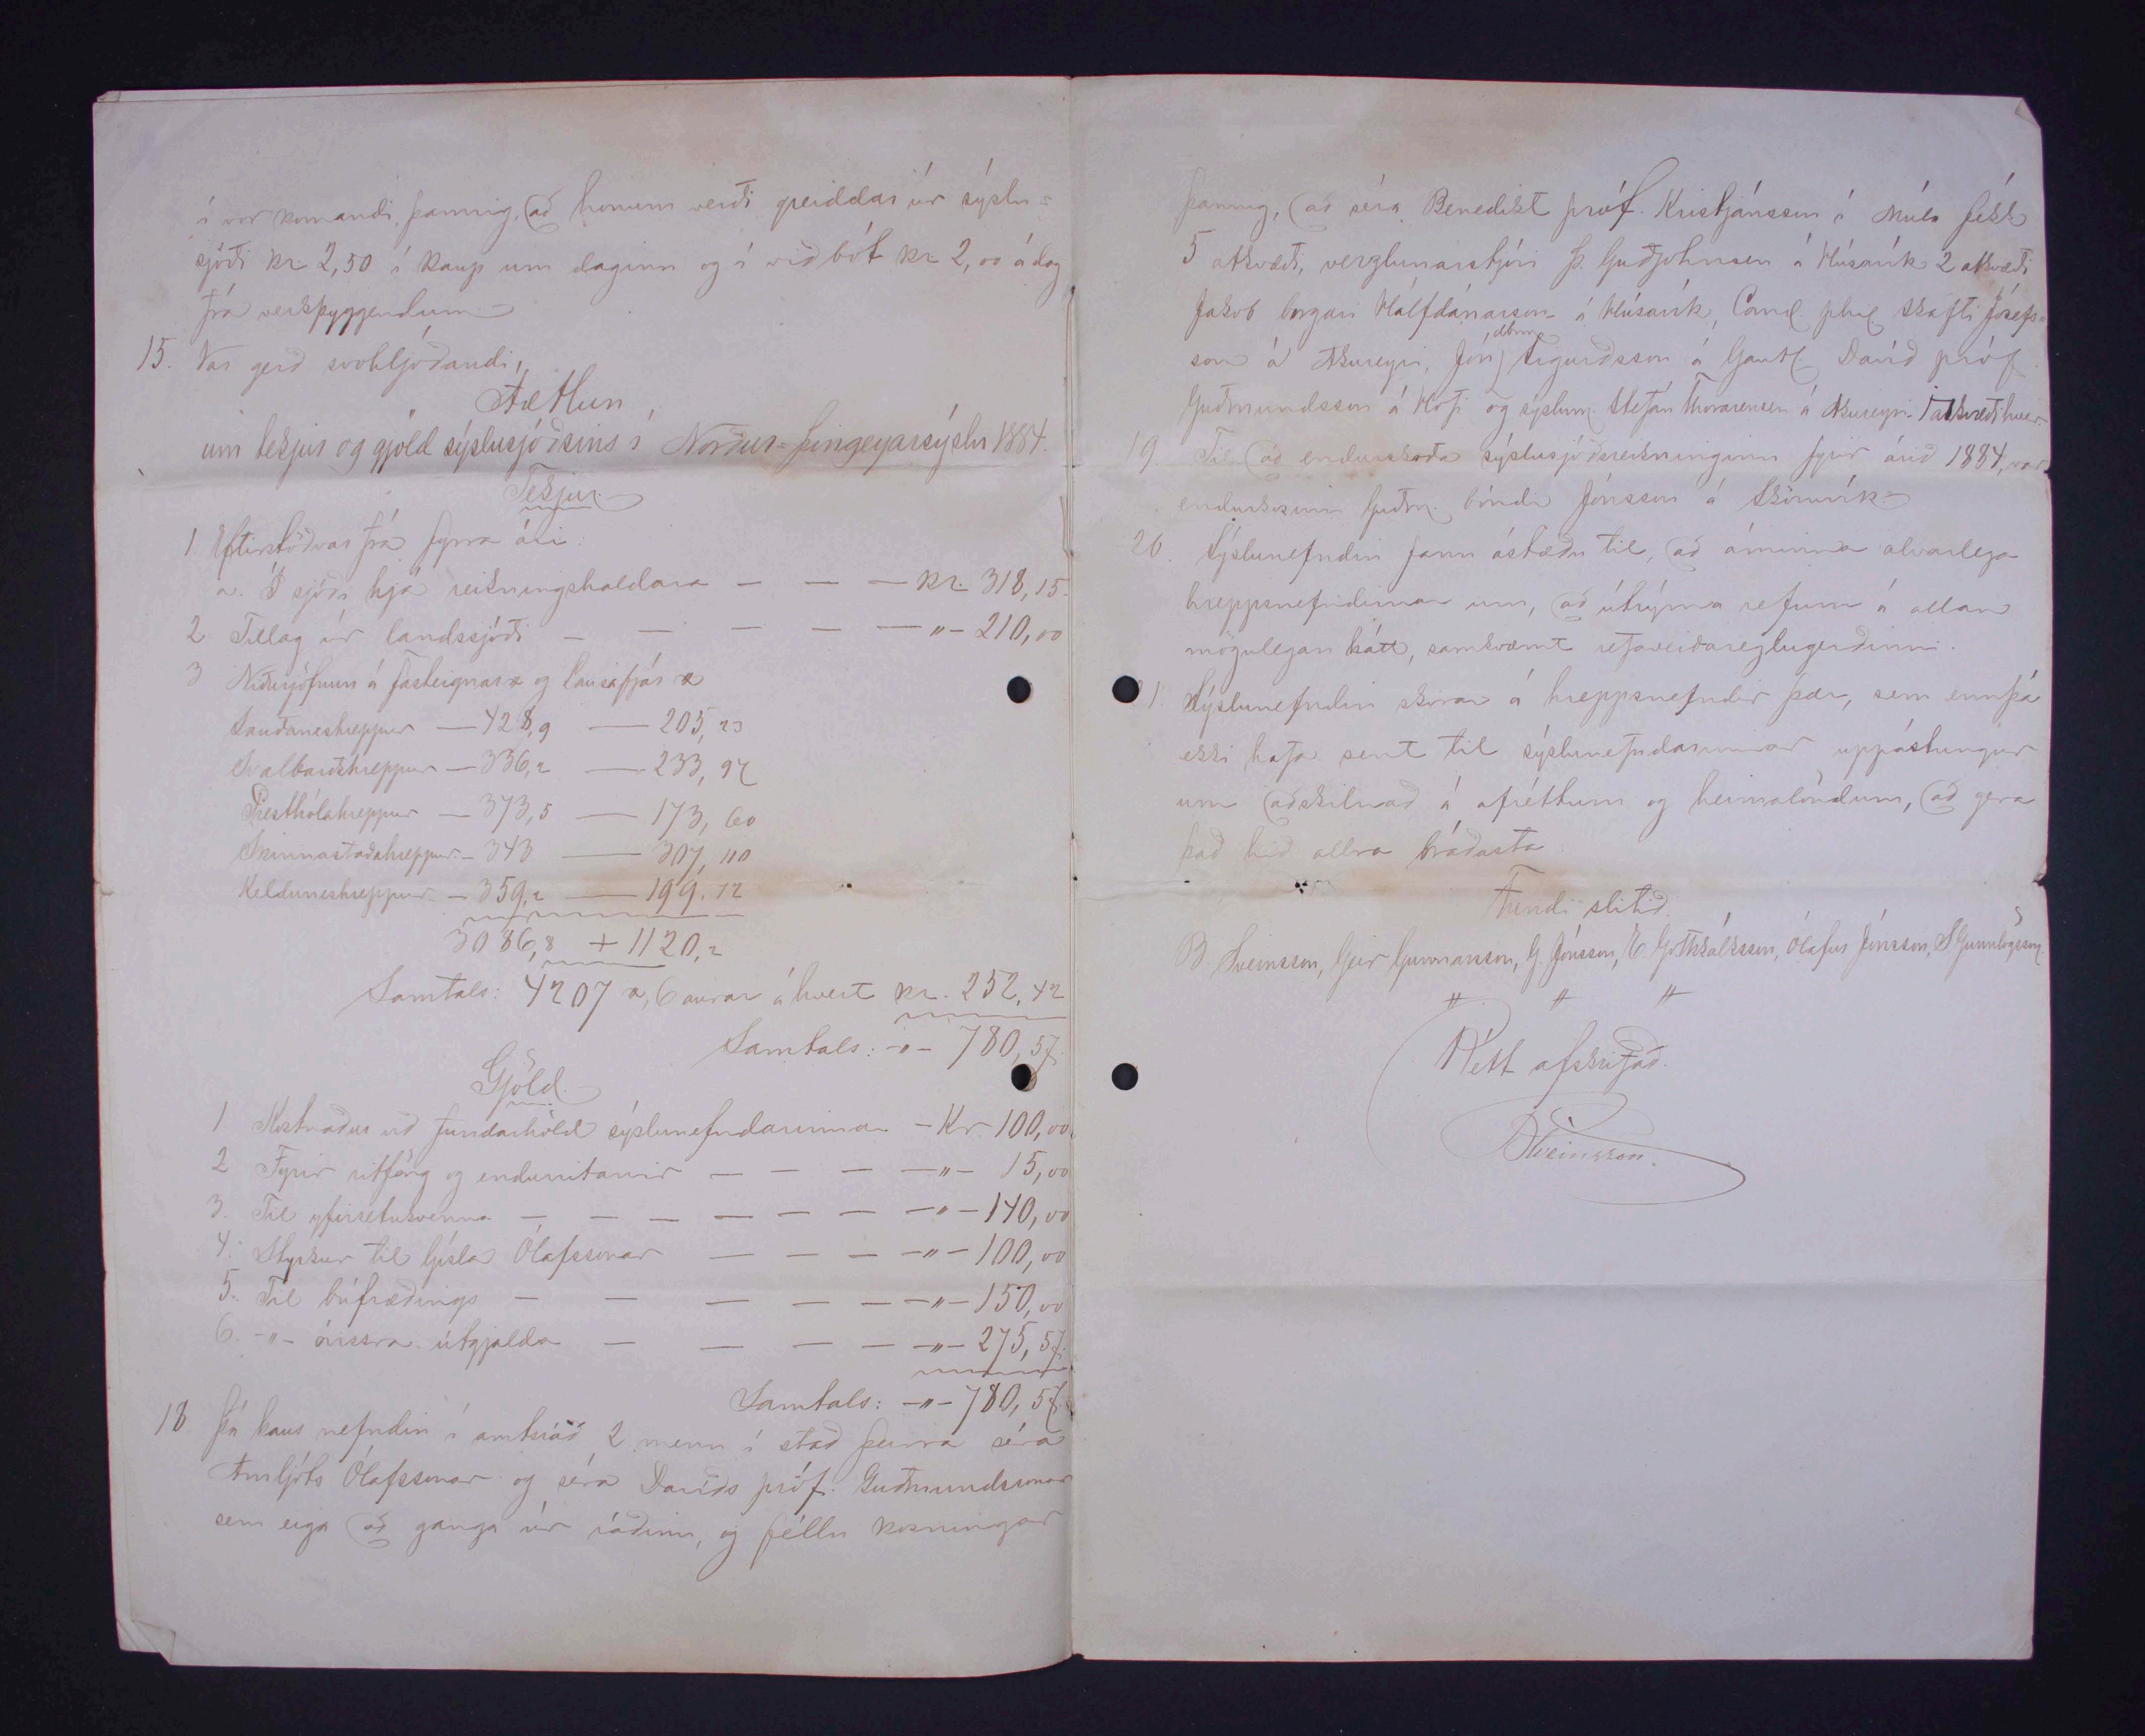 í vor komandi, þannig, að honum verði greiddar úr sýslu-
sjóði kr 2,50 í kaup um daginn og í viðbót kr 2,00 á dag
frá verkþyggendum.
15. Var gerð svohljóðandi,
Áætlun
um tekjur og gjöld sýslusjóðsins í Norður-Þingeyarsýslu 1884.
Tekjur
1 Eptirstöðvar frá fyrra ári:
a. Í sjóði hjá reikningshaldara — — — kr. 318,15.
2 Tillag úr landssjóði — — — — — „ - 210,00
3 Niðurjöfnun á fasteignar og lausafjár
Sauðaneshreppur — 428,9 — 205,23
Svalbarðshreppur — 336,2 — 233,97
Presthólahreppur — 373,5 — 173,60
Skinnastaðahreppur — 343 — 307,110
Kelduneshreppur — 359,2 — 199.12
3086,8 + 1120,2
Samtals: 4207, 6 aurar á hvert kr. 252,42
Samtals: -„- 780,57.
Gjöld
1 Kostnaður við fundarhöld sýslunefndarinnar - Kr. 100,00.
2 Fyrir ritföng og endurritanir — — — -„- 15,00
3. Til yfirsetukvenna — — — — — — -„- 140,00
4. Styrkur til Gísla Ólafssonar — — — -„- 100,00
5. Til búfræðings — — — — — -„- 150,00
6. -„- óvissra útgjalda — — — — -„- 275,57.
Samtals: -„- 780,57.
18 Þá kaus nefndin í amtsráð 2 menn í stað þeirra séra
Arnljóts Ólafssonar og séra Davíðs próf. Guðmundssonar
sem eiga að ganga úr ráðinu, og féllu kosningar
þannig, að séra Benedikt próf. Kristjánsson í Múla fékk
5 atkvæði, verzlunarstjóri Þ. Guðjohnsen á Húsavík 2 atkvæði
Jakob borgari Hálfdánarson á Húsavík, Cand. phil Skafti Jósefs-
son á Akureyri, Jón dbrm Sigurðsson á Gautl. Davíð próf
Guðmundsson á Hofi og sýslum. Stefán Thorarensen á Akureyri 1 atkvæði hver.
19 Til að endurskoða sýslusjóðsreikninginn fyrir árið 1884, var
endurkosinn Guðm. bóndi Jónsson á Skoruvík.
20. Sýslunefndin fann ástæðu til, að áminna alvarlega
hreppsnefndirnar um, að útrýma refum á allan
mögulegan hátt, samkvæmt refaveiðareglugerðinni.
21. Sýslunefndin skorar á hreppsnefndir þær, sem ennþá
ekki hafa sent til sýslunefndarinnar uppástungur
um aðskilnað á afréttum og heimalöndum, að gera
það hið allra bráðasta.
Fundi slitið.
B. Sveinsson, Geir Gunnarsson, G. Jónsson, E. Gottskálksson, Ólafur Jónsson, S Gunnlögsson
„ „ „
Rétt afskrifað.
BSveinsson.